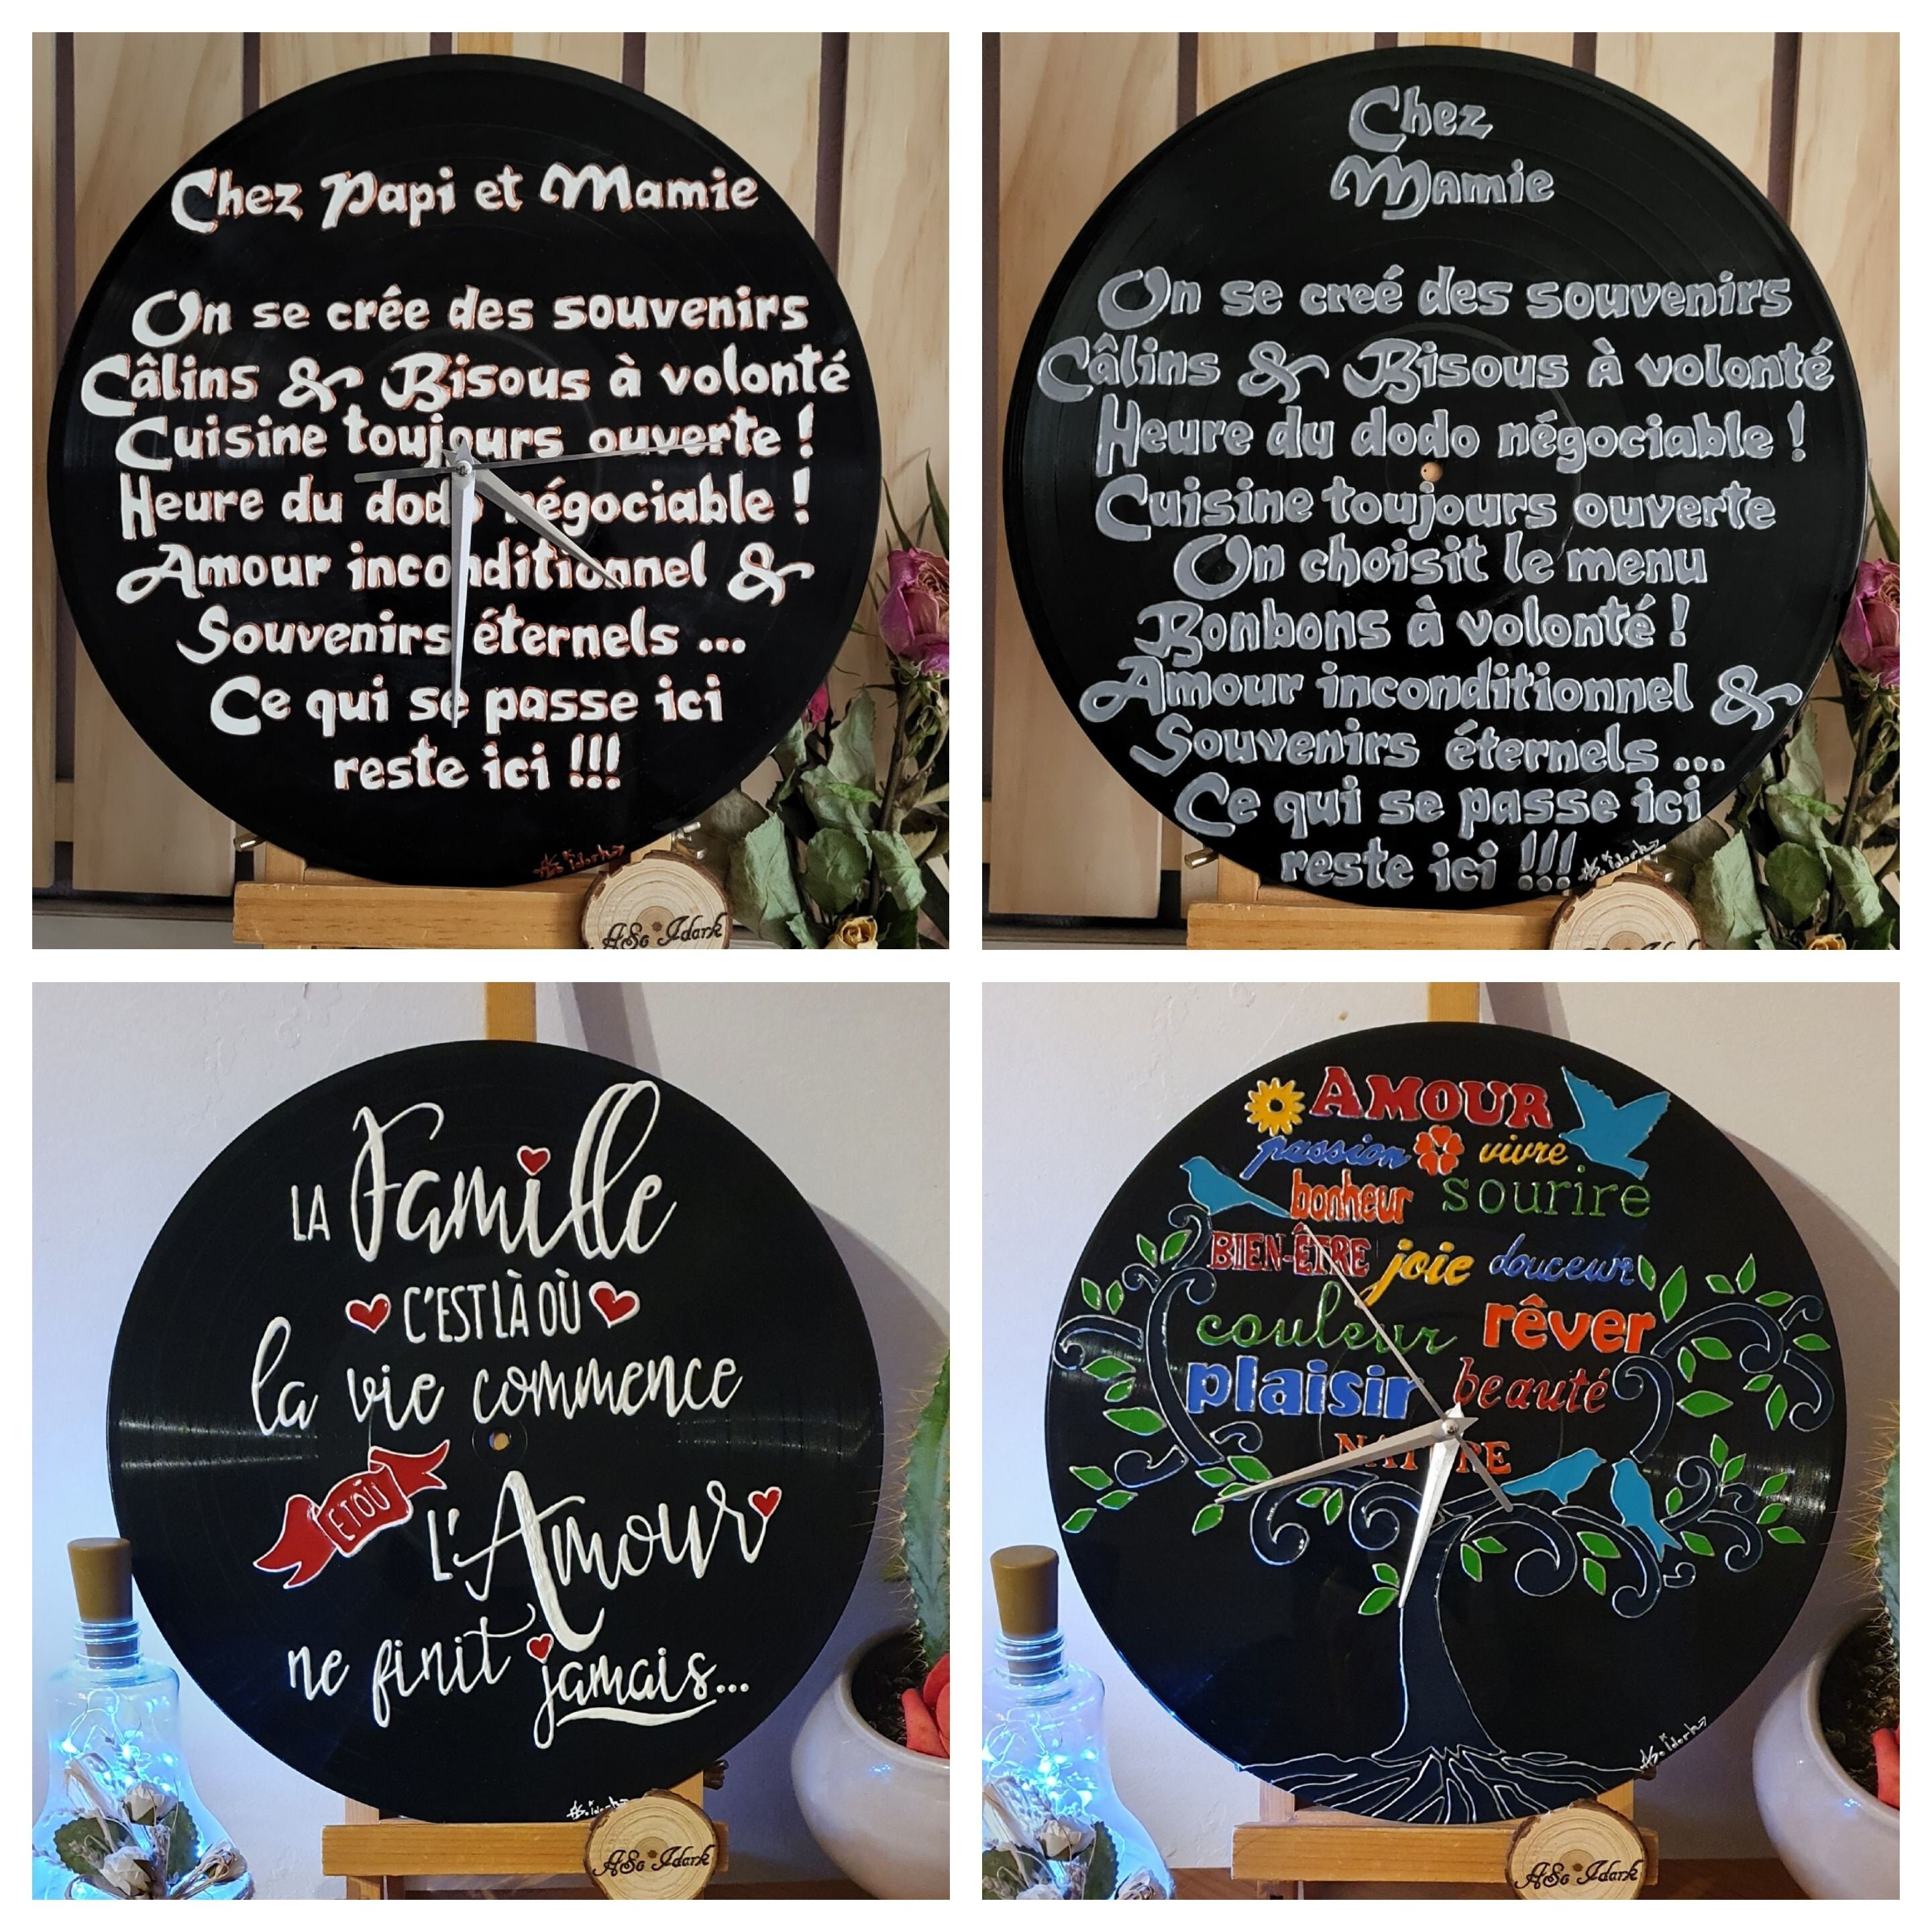 Chez Papi et Mamie
On se crée des souvenirs
Câlins & Bisous à volonté
Cuisine toujours ouverte !
Heure du dodo négociable !
Amour inconditionnel &
Souvenirs éternels ...
Ce qui se passe ici
reste ici !!!
ASo Idark
Chez
Mamie
On se creé des souvenirs
Câlins & Bisous à volonté
Heure du dodo négociable !
Cuisine toujours ouverte
On choisit le menu
Bonbons à volonté !
Amour inconditionnel &
Souvenirs éternels ...
Ce qui se passe ici
reste ici !!!
ASo Idark
LA Famille
C'EST LÀ OÙ
la vie commence
ET OÙ
L'Amour
ne finit jamais...
ASo Idark
AMOUR
passion vivre
bonheur sourire
BIEN-ÊTRE joie douceur
couleur rêver
plaisir beauté
NATURE
ASo Idark